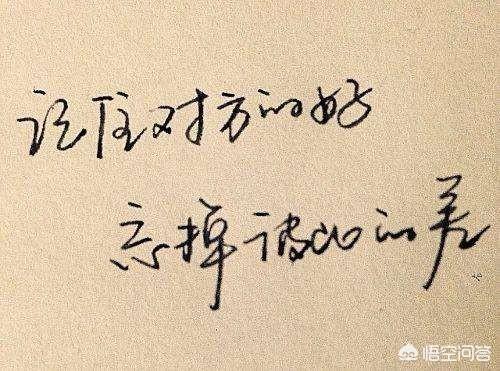 记住对方的好
忘掉彼此的差
悟空问答